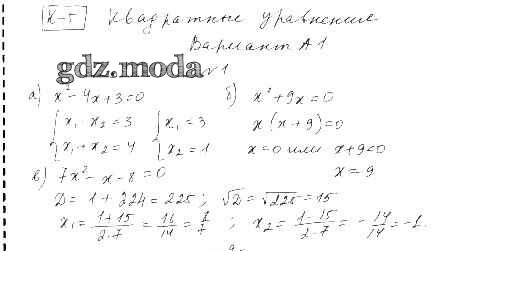 К-5 Квадратные уравнения
Вариант А1
gdz.moda
№1
а) x² - 4x + 3 = 0
{ x₁ x₂ = 3 { x₁ = 3
{ x₁ + x₂ = 4 { x₂ = 1
б) x² + 9x = 0
x (x + 9) = 0
x = 0 или x + 9 = 0
x = 9
в) 7x² - x - 8 = 0
D = 1 + 224 = 225; √D = √225 = 15
x₁ = (1 + 15)/(2·7) = 16/14 = 8/7; x₂ = (1 - 15)/(2·7) = -14/14 = -1.